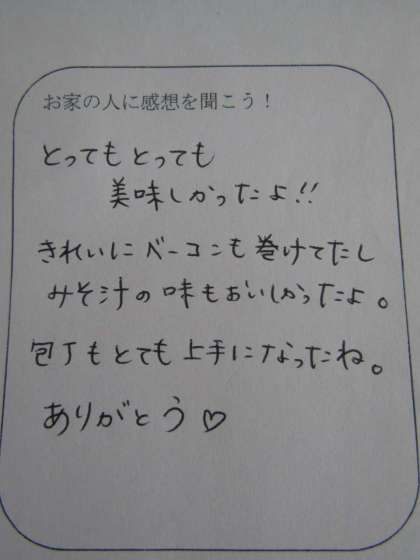 お家の人に感想を聞こう！
とってもとっても
美味しかったよ!!
きれいにベーコンも巻けてたし
みそ汁の味もおいしかったよ。
包丁もとても上手になったね。
ありがとう♡